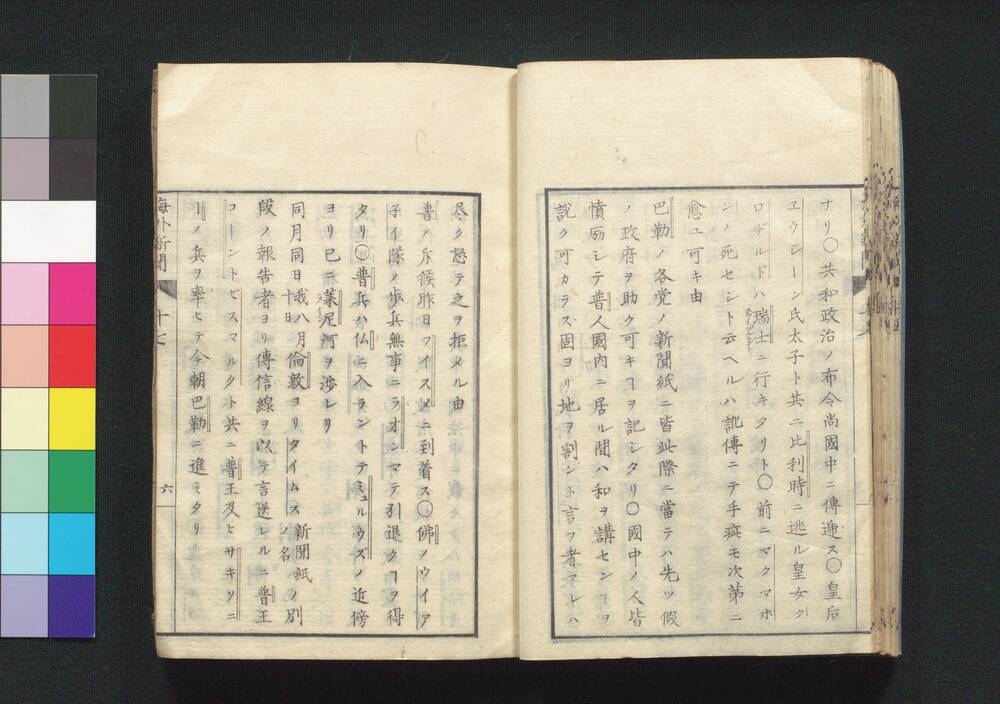 ナリ〇共和政治ノ布令尚國中ニ傳逓ス〇皇后
ヱウレーン氏太子ト共ニ比利時ニ逃ル皇女ク
ロヂルドハ瑞士ニ行キタリト〇前ニマクマホ
ンノ死セシト云ヘルハ訛傳ニテ手疵モ次第ニ
愈ユ可キ由
巴勒ノ各党ノ新聞紙ニ皆此際ニ當テハ先ツ假
ノ政府ヲ助ク可キヿヲ記シタリ〇國中ノ人皆
憤励シテ普人國内ニ居ル間ハ和ヲ講センヿヲ
説ク可カラス固ヨリ地ヲ割ント言フ者アレハ
尽ク怒テ之ヲ拒メル由
普ノ斥候昨日フイスメニ到着ス〇佛ノウイア
子イ隊ノ歩兵無事ニラオンマテ引退クヿヲ得
タリ〇普兵ハ仏ニ入ラントテミュルウズノ近傍
ヨリ已ニ葉尼河ヲ渉レリ
同月同日我八月十日倫敦ヨリタイムス新聞紙ノ名ノ別
段ノ報告者ヨリ傳信線ヲ以テ言送レルニ普王
コーントビスマルクト共ニ普王及ヒサキソニ
ーノ兵ヲ率ヒテ今朝巴勒ニ進ミタリ
海外新聞
十七
六